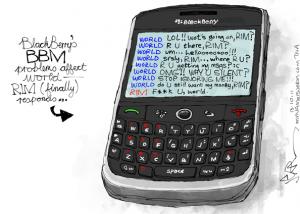 BlackBerry's
BBM
problems affect
world...
RIM (finally)
responds...
BlackBerry
WORLD LOL!! wot's going on, RIM?
WORLD R U there, RIM?
WORLD um... helloooooo!!
WORLD srsly, RIM... where RU?
WORLD R U getting my msgs?
WORLD OMG!! WHY U SILENT?
WORLD STOP IGNORING ME!!
WORLD do U still want my money, RIM?
RIM F*** U world.
SPACE
13·10·11